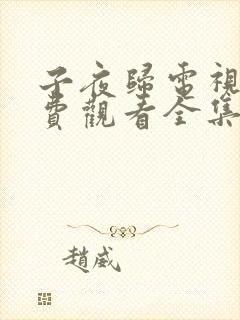 子夜歸電視
費觀看全集
趙威